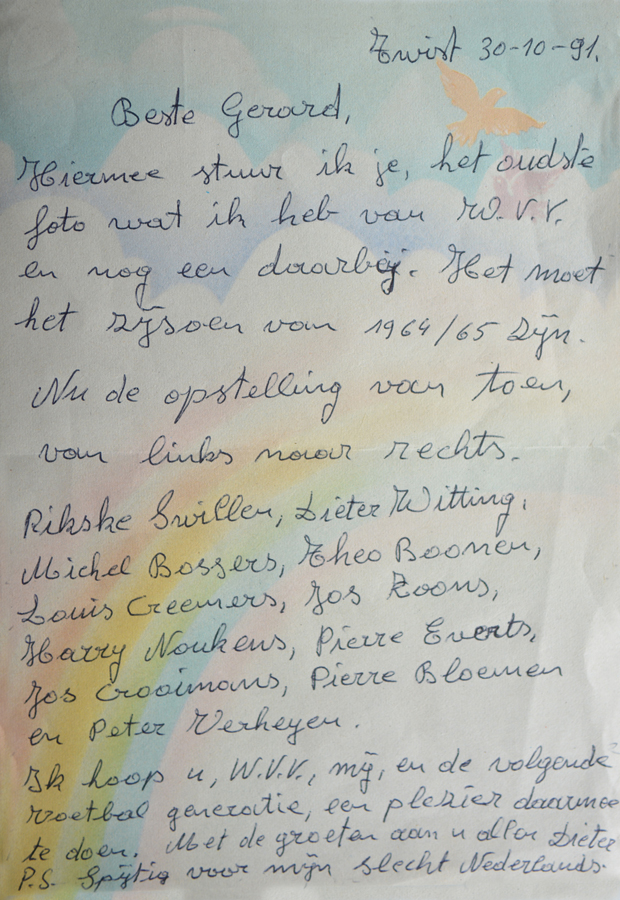 Twist 30-10-91.
Beste Gerard,
Hiermee stuur ik je, het oudste
foto wat ik heb van W.V.V.
en nog een daarbij. Het moet
het zijsoen van 1964/65 zijn.
Nu de opstelling van toen,
van links naar rechts.
Rikske Swillen, Dieter Witting,
Michel Bossers, Theo Boonen,
Louis Creemers, Jos Roons,
Harry Noukens, Pierre Everts,
Jos Crooimans, Pierre Bloemen
en Peter Verheyen.
Ik hoop u, W.V.V., mij, en de volgende
voetbal generatie, een plezier daarmee
te doen. Met de groeten aan u allen Dieter
P.S. Spijtig voor mijn slecht Nederlands.